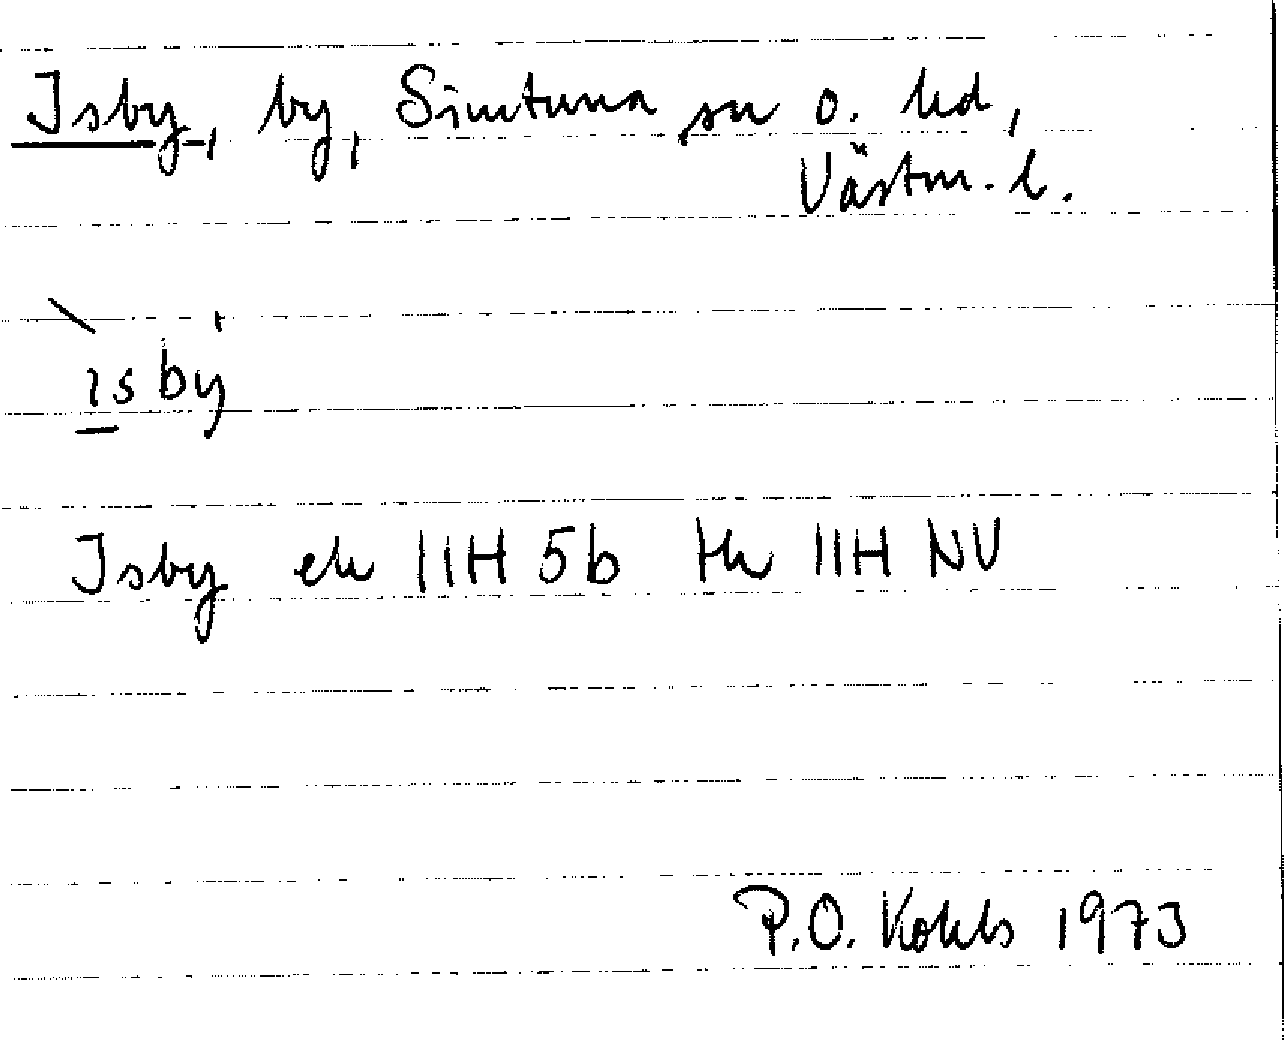 Isby, by, Simtuna sn o. hd,
Västm. l.
ìsby̍
Isby ek 11H 5b tk 11H NV
P.O. Kohls 1973